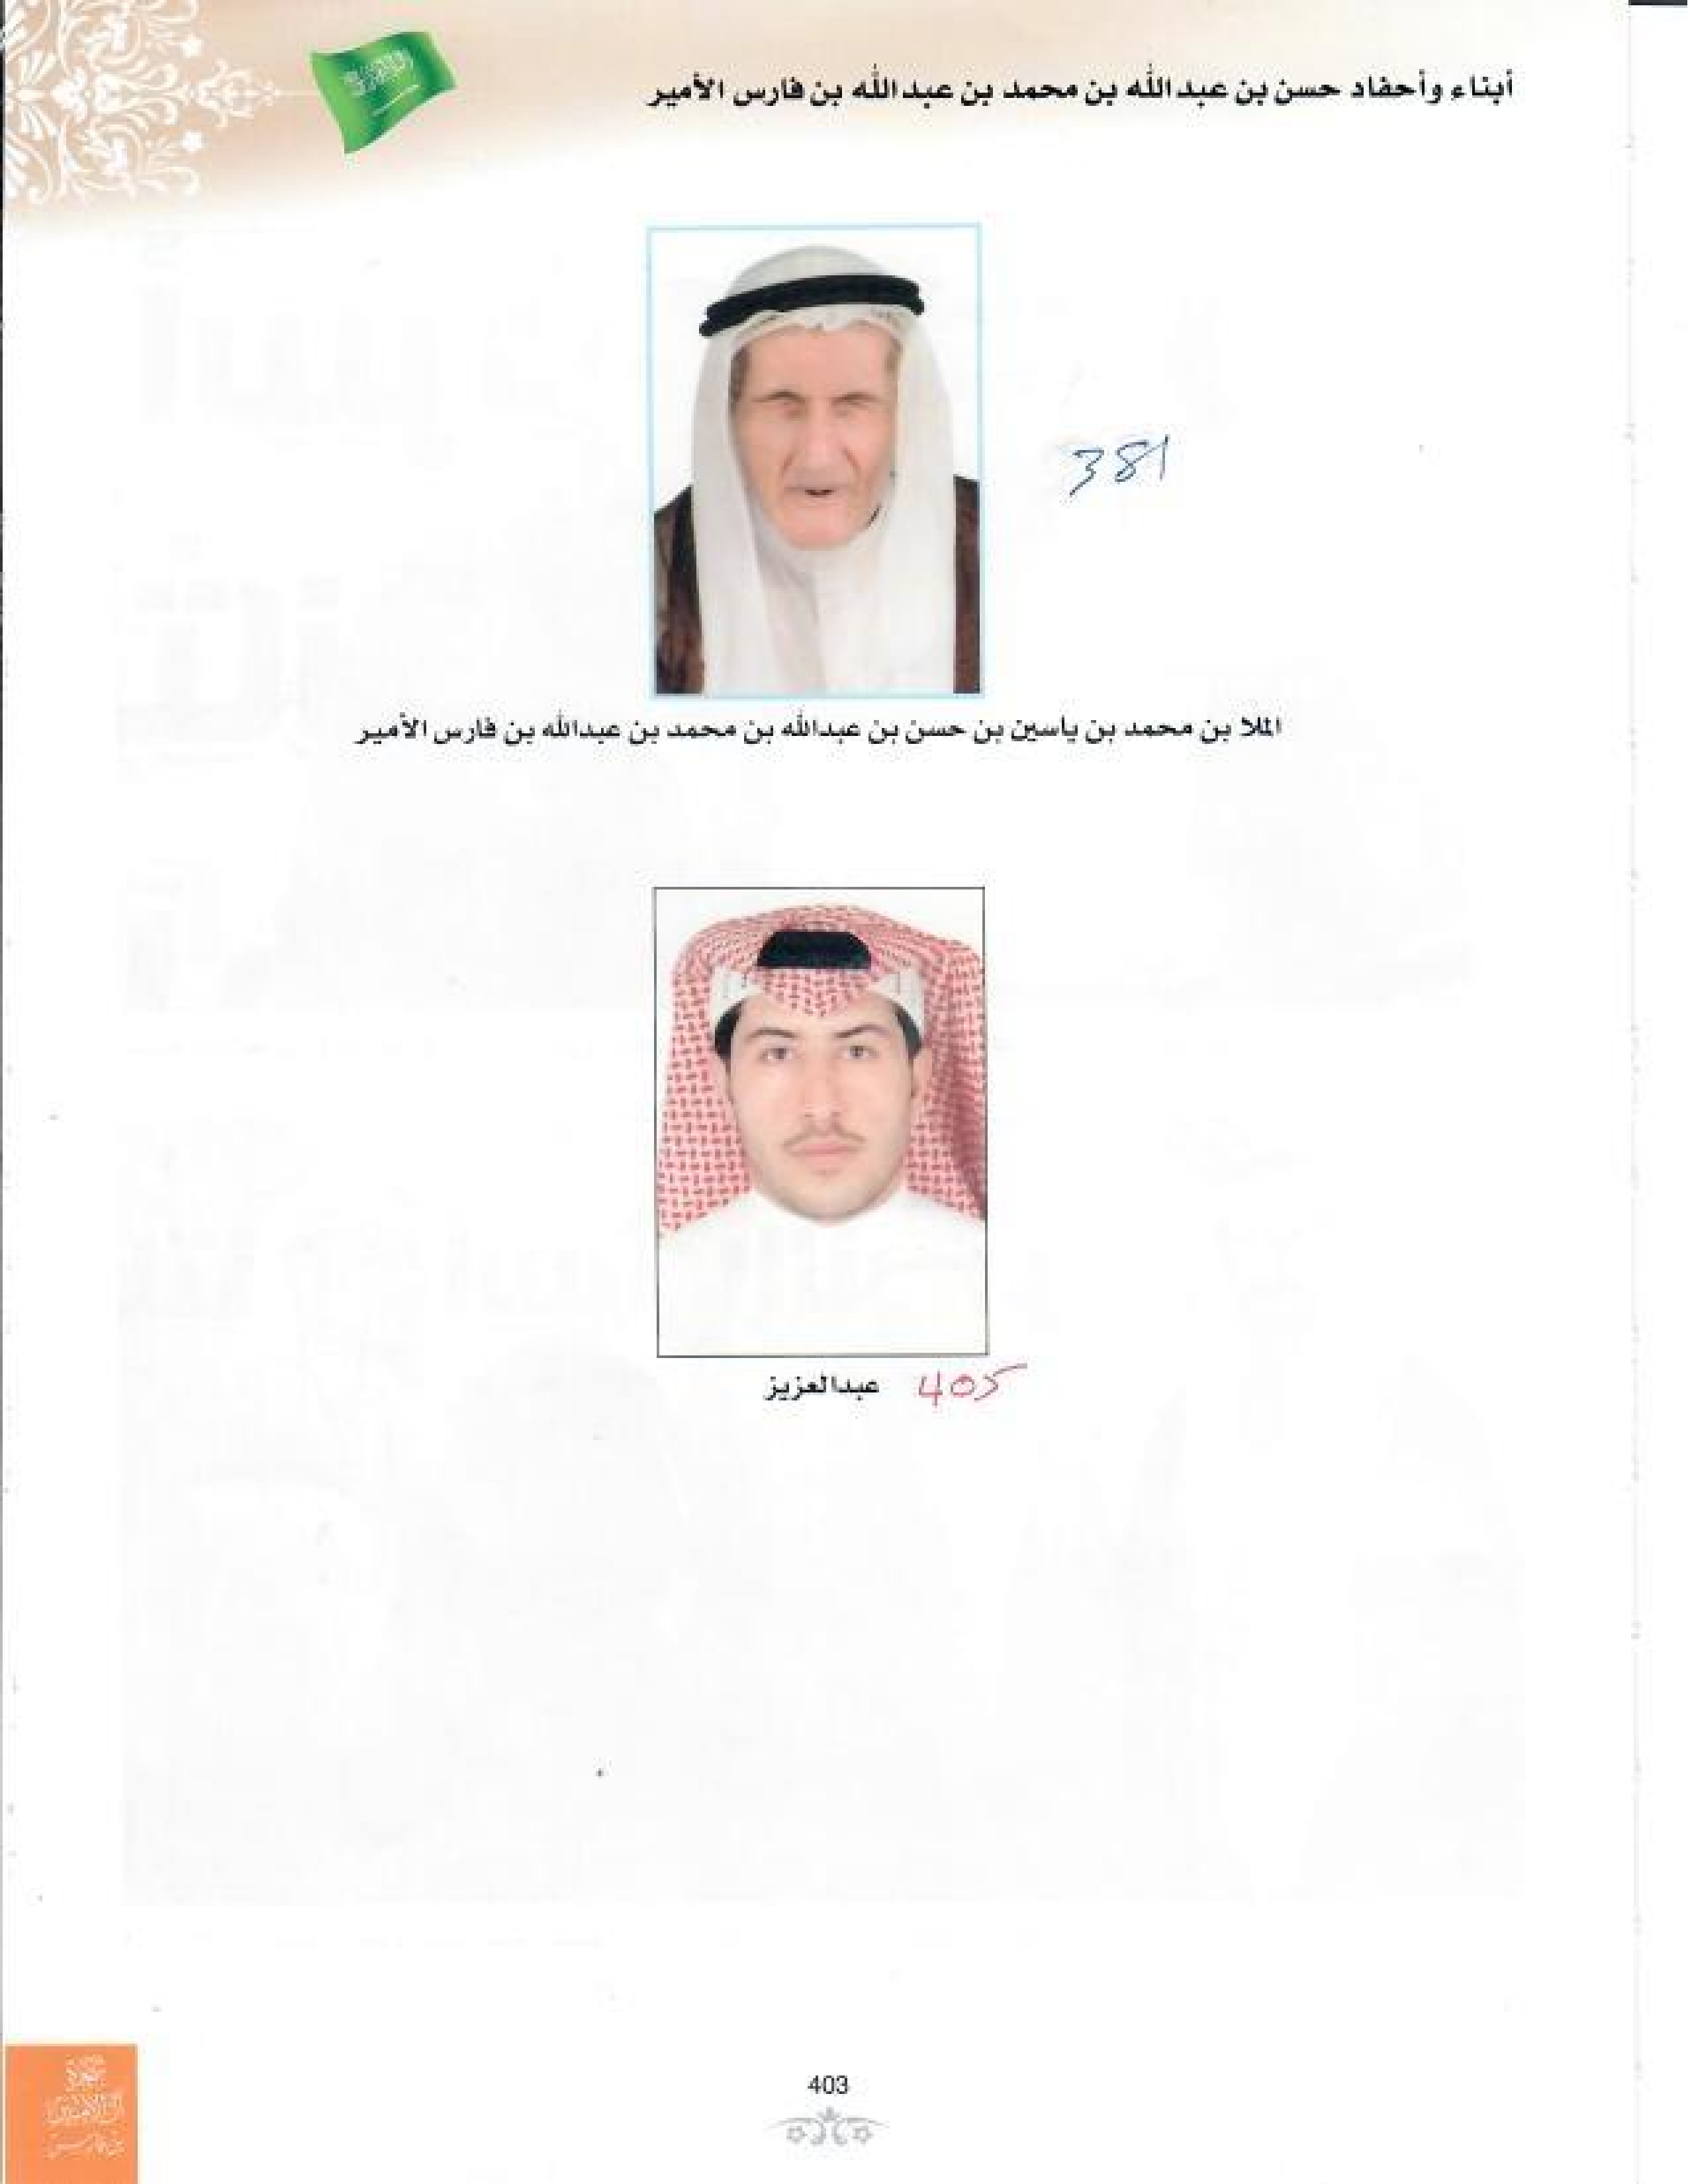 أبناء وأحفاد حسن بن عبدالله بن محمد بن عبدالله بن فارس الأمير
381
الملا بن محمد بن ياسين بن حسن بن عبدالله بن محمد بن عبدالله بن فارس الأمير
405 عبدالعزيز
403